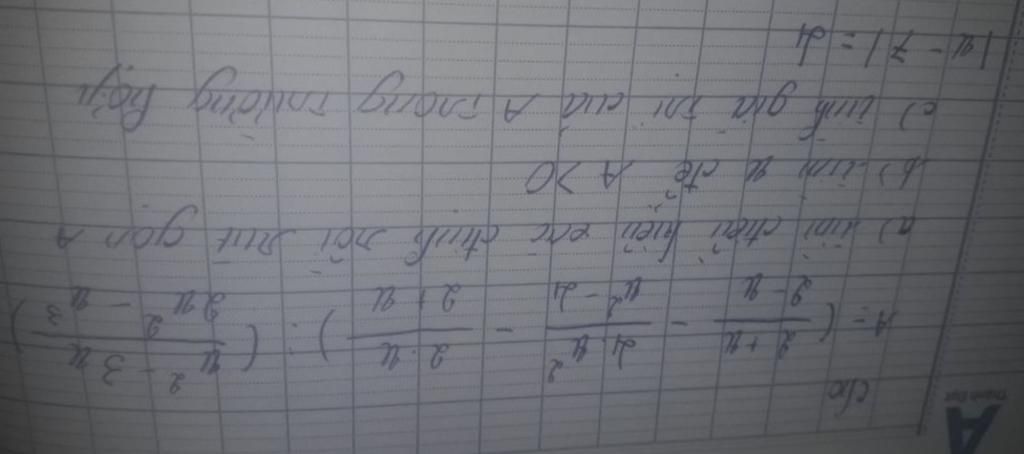 A
Thành Đạt
cho
A = ( \frac{2+x}{2-x} - \frac{4x^2}{x^2-4} - \frac{2-x}{2+x} ) : ( \frac{x^2-3x}{2x^2-x^3} )
a) tìm điều kiện xác định rồi rút gọn A
b) tìm x để A > 0
c) tính giá trị của A trong trường hợp
|x - 7| = 4